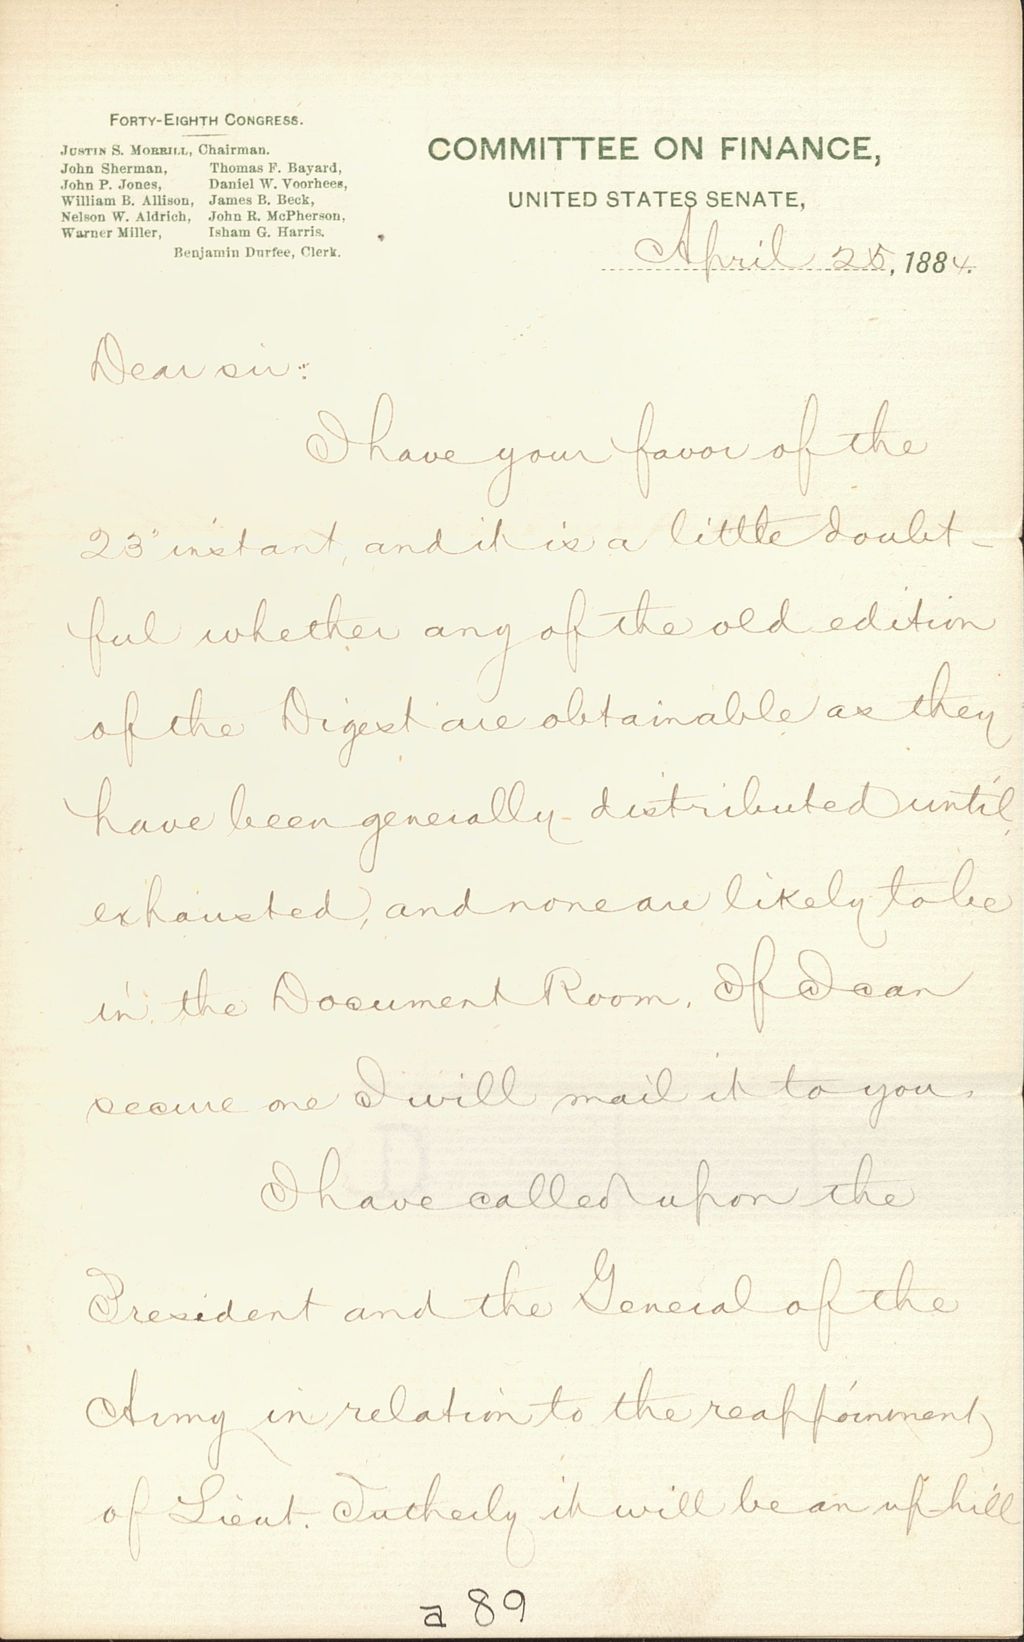 FORTY-EIGHTH CONGRESS.
JUSTIN S. MORRILL, Chairman.
John Sherman, Thomas F. Bayard,
John P. Jones, Daniel W. Voorhees,
William B. Allison, James B. Beck,
Nelson W. Aldrich, John R. McPherson,
Warner Miller, Isham G. Harris.
Benjamin Durfee, Clerk.
COMMITTEE ON FINANCE,
UNITED STATES SENATE,
April 25, 1884.
Dear sir:
I have your favor of the
23" instant, and it is a little doubt-
ful whether any of the old edition
of the Digest are obtainable as they
have been generally distributed until
exhausted, and none are likely to be
in the Document Room. If I can
secure one I will mail it to you.
I have called upon the
President and the General of the
Army in relation to the reappoinment
of Lieut. Tutherly it will be an up-hill
a 89